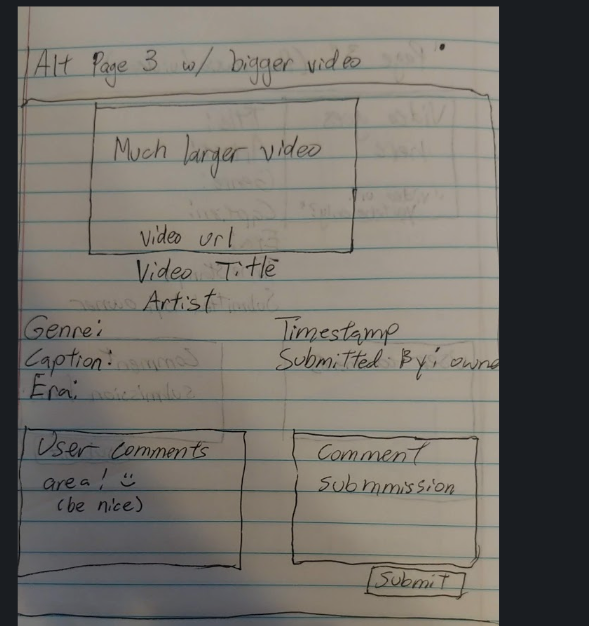 Alt Page 3 w/ bigger video
Much larger video
Video url
Video Title
Artist
Genre:
Caption:
Era:
Timestamp
Submitted By: owne
User Comments
area! :)
(be nice)
Comment
submmission
Submit